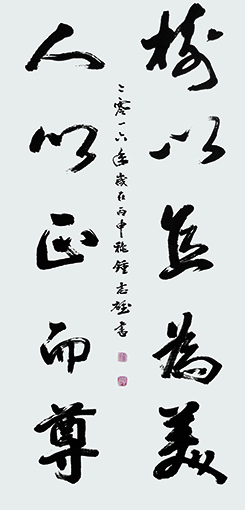 樹以直為美
人以正而尊
二零一六年歲在丙申 鍾志雄書